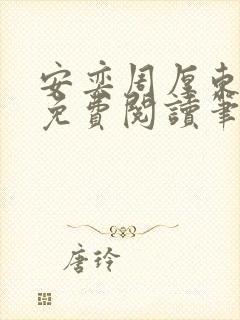 安奕周厘東
免費閱讀筆
唐玲